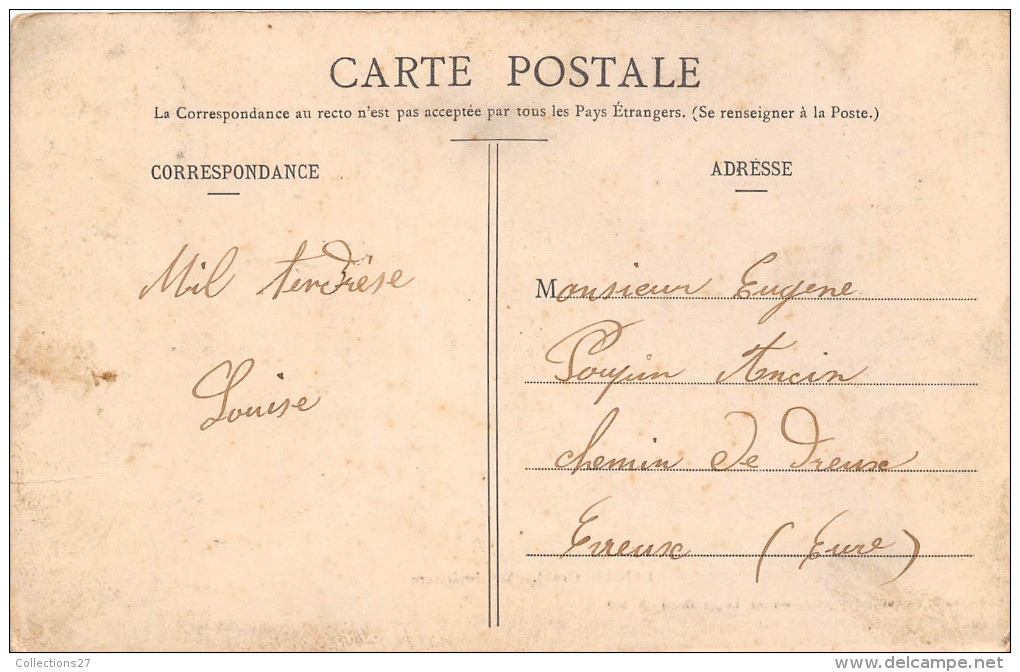 CARTE POSTALE
La Correspondance au recto n'est pas acceptée par tous les Pays Étrangers. (Se renseigner à la Poste.)
CORRESPONDANCE
Mil tendrèse
Louise
ADRESSE
Monsieur Eugene
Poupin Ancin
chemin de Dreux
Evreux (Eure)
Collections27
www.delcampe.net